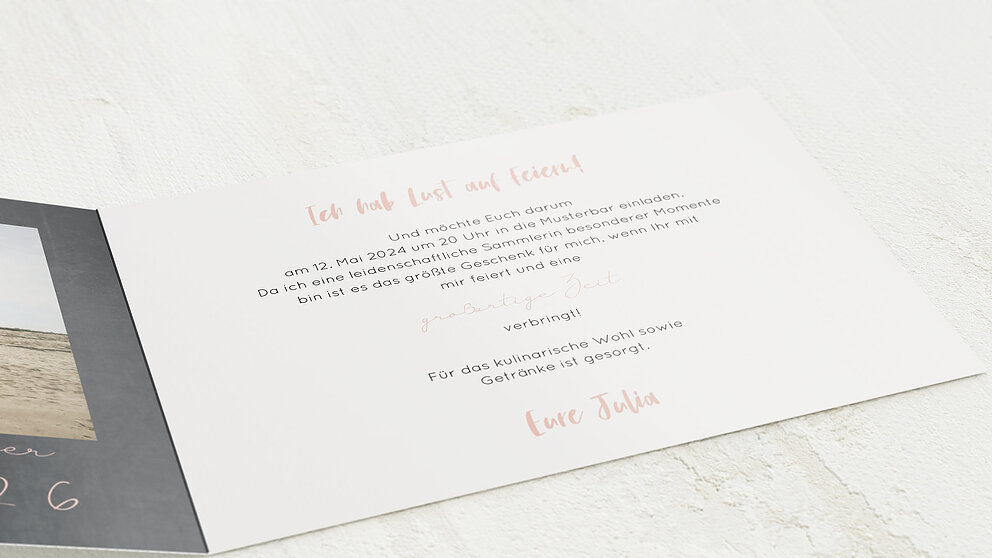 Ich hab Lust auf Feiern!
Und möchte Euch darum
am 12. Mai 2024 um 20 Uhr in die Musterbar einladen.
Da ich eine leidenschaftliche Sammlerin besonderer Momente
bin ist es das größte Geschenk für mich, wenn Ihr mit
mir feiert und eine
großartige Zeit
verbringt!
Für das kulinarische Wohl sowie
Getränke ist gesorgt.
Eure Julia
er
2 6